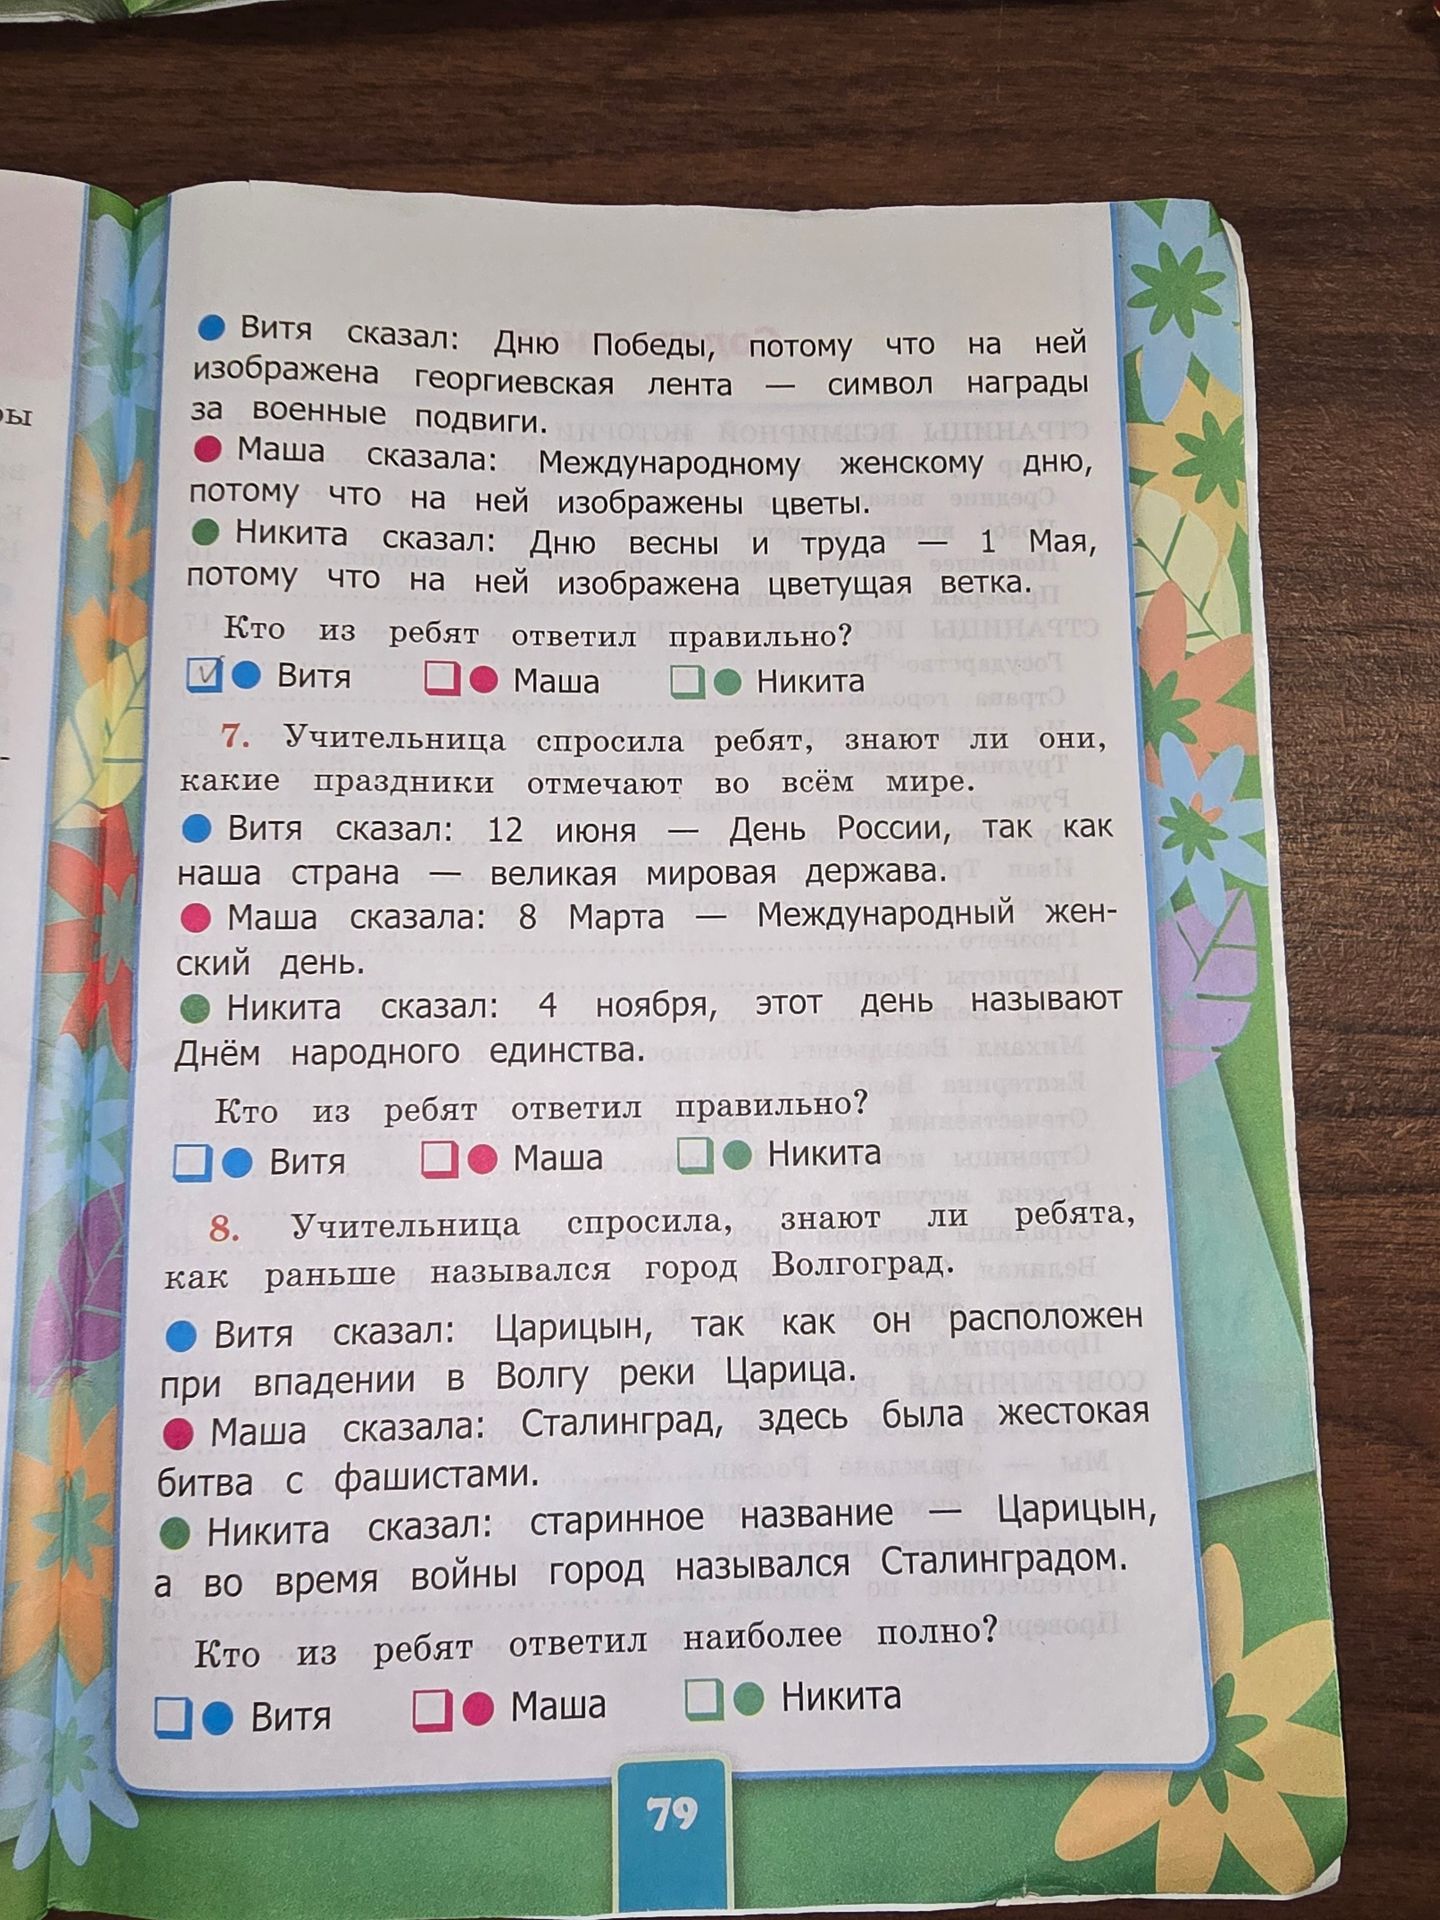 ры
-
Витя сказал: Дню Победы, потому что на ней
изображена георгиевская лента — символ награды
за военные подвиги.
Маша сказала: Международному женскому дню,
потому что на ней изображены цветы.
Никита сказал: Дню весны и труда — 1 Мая,
потому что на ней изображена цветущая ветка.
Кто из ребят ответил правильно?
Витя Маша Никита
7. Учительница спросила ребят, знают ли они,
какие праздники отмечают во всём мире.
Витя сказал: 12 июня — День России, так как
наша страна — великая мировая держава.
Маша сказала: 8 Марта — Международный жен-
ский день.
Никита сказал: 4 ноября, этот день называют
Днём народного единства.
Кто из ребят ответил правильно?
Витя Маша Никита
8. Учительница спросила, знают ли ребята,
как раньше назывался город Волгоград.
Витя сказал: Царицын, так как он расположен
при впадении в Волгу реки Царица.
Маша сказала: Сталинград, здесь была жестокая
битва с фашистами.
Никита сказал: старинное название — Царицын,
а во время войны город назывался Сталинградом.
Кто из ребят ответил наиболее полно?
Витя Маша Никита
79